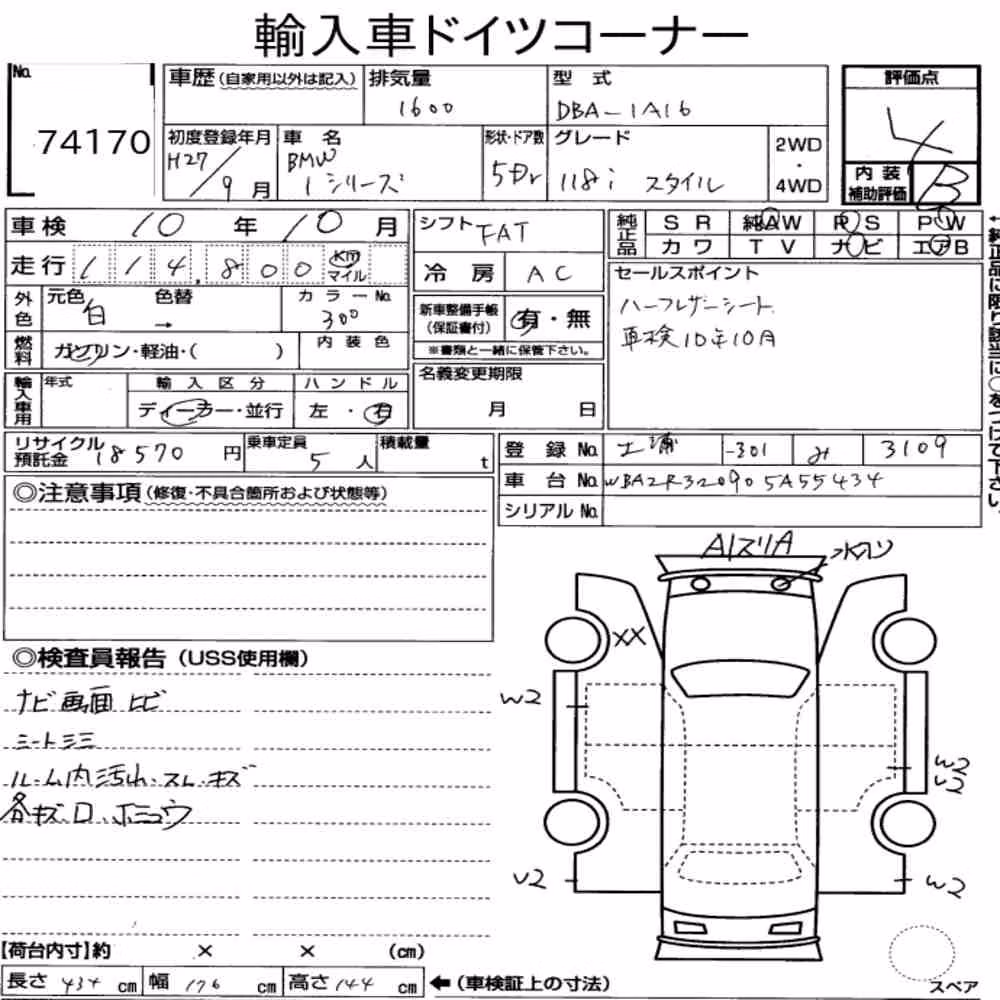 輸入車ドイツコーナー
No. 74170
車歴（自家用以外は記入）
排気量 1600
型式 DBA-1A16
評価点 4
初度登録年月 H27/9月
車名 BMW 1シリーズ
形状・ドア数 5Dr
グレード 118i スタイル
2WD・4WD
内装補助評価 B
車検 10年10月
走行 114,800 km マイル
シフト FAT
冷房 AC
純正品 SR 純AW PS PW
カワ TV ナビ エアB
←純正品に限り該当に○をつけて下さい。
外色 元色 白 色替 → カラーNo. 300
燃料 ガソリン・軽油・( )
内装色
新車整備手帳（保証書付） 有・無
※書類と一緒に保管下さい。
セールスポイント
ハーフレザーシート
車検10年10月
輸入車用 年式
輸入区分 ディーラー・並行
ハンドル 左・右
名義変更期限 月 日
リサイクル預託金 18570円
乗車定員 5人
積載量 t
登録No. 土浦 -301 み 3109
車台No. WBA2R320905A55434
シリアルNo.
◎注意事項（修復・不具合箇所および状態等）
AlスリA
水入り
XX
W2
W2
U2
U2
W2
◎検査員報告（USS使用欄）
ナビ画面ヒビ
シートシミ
ルーム内汚れ・スレ・キズ
各キズ、ロ、ホシュウ
【荷台内寸】約 × × (cm)
長さ 434 cm 幅 176 cm 高さ 144 cm ←（車検証上の寸法）
スペア